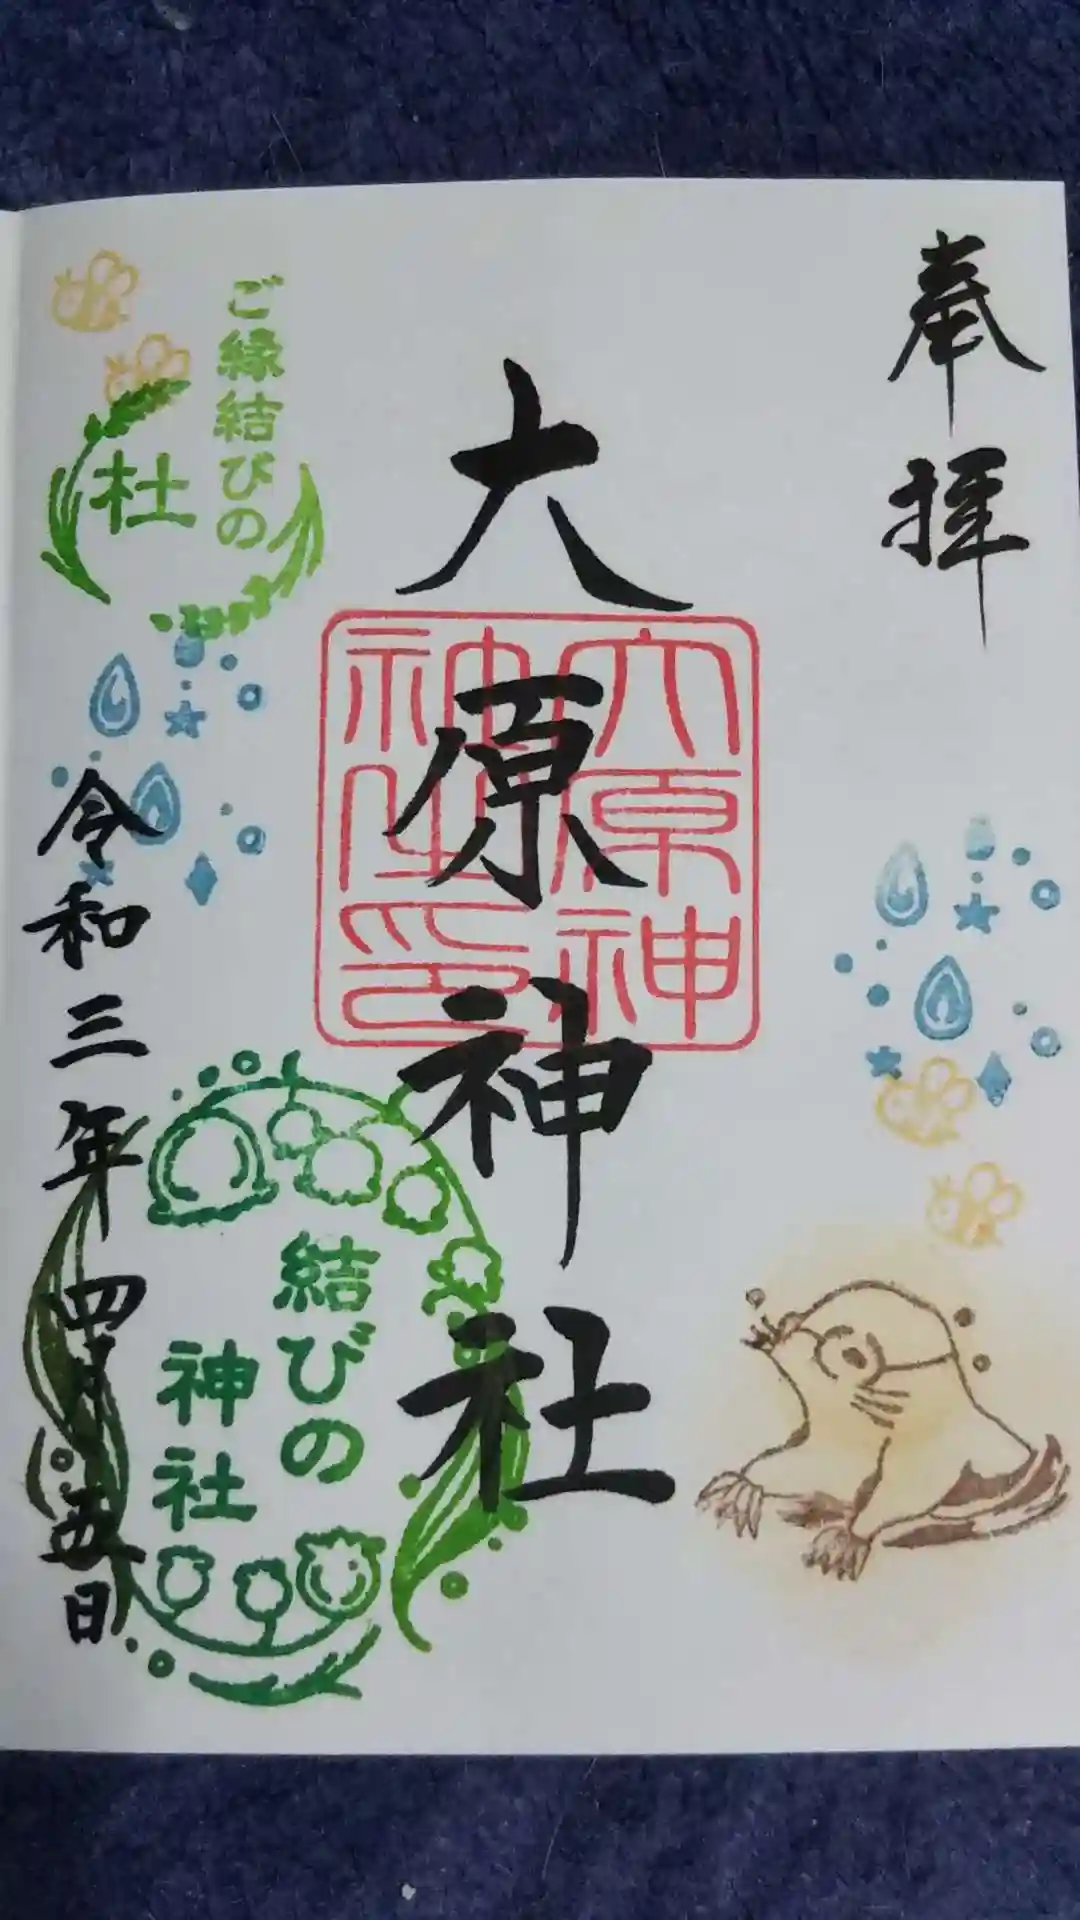 奉拝
大原神社
大原神
神社印
ご縁結びの
杜
結びの
神社
令和三年四月五日